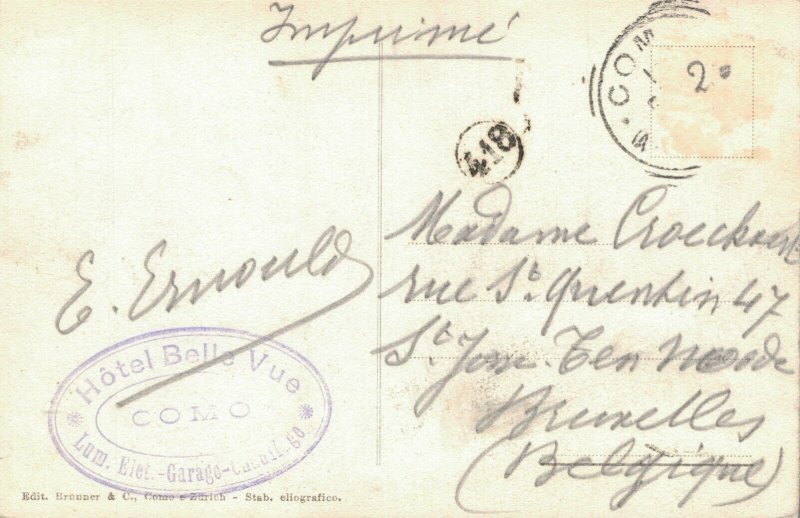 Imprimé
COM
2
418
Madame Croeckaert
rue St. Quentin 47
St. Josse Ten Noode
Bruxelles
(Belgique)
E. Ernould
Hôtel Belle Vue
COMO
Lum. Elet.-Garage-Chauffage
Edit. Brunner & C., Como e Zürich - Stab. eliografico.